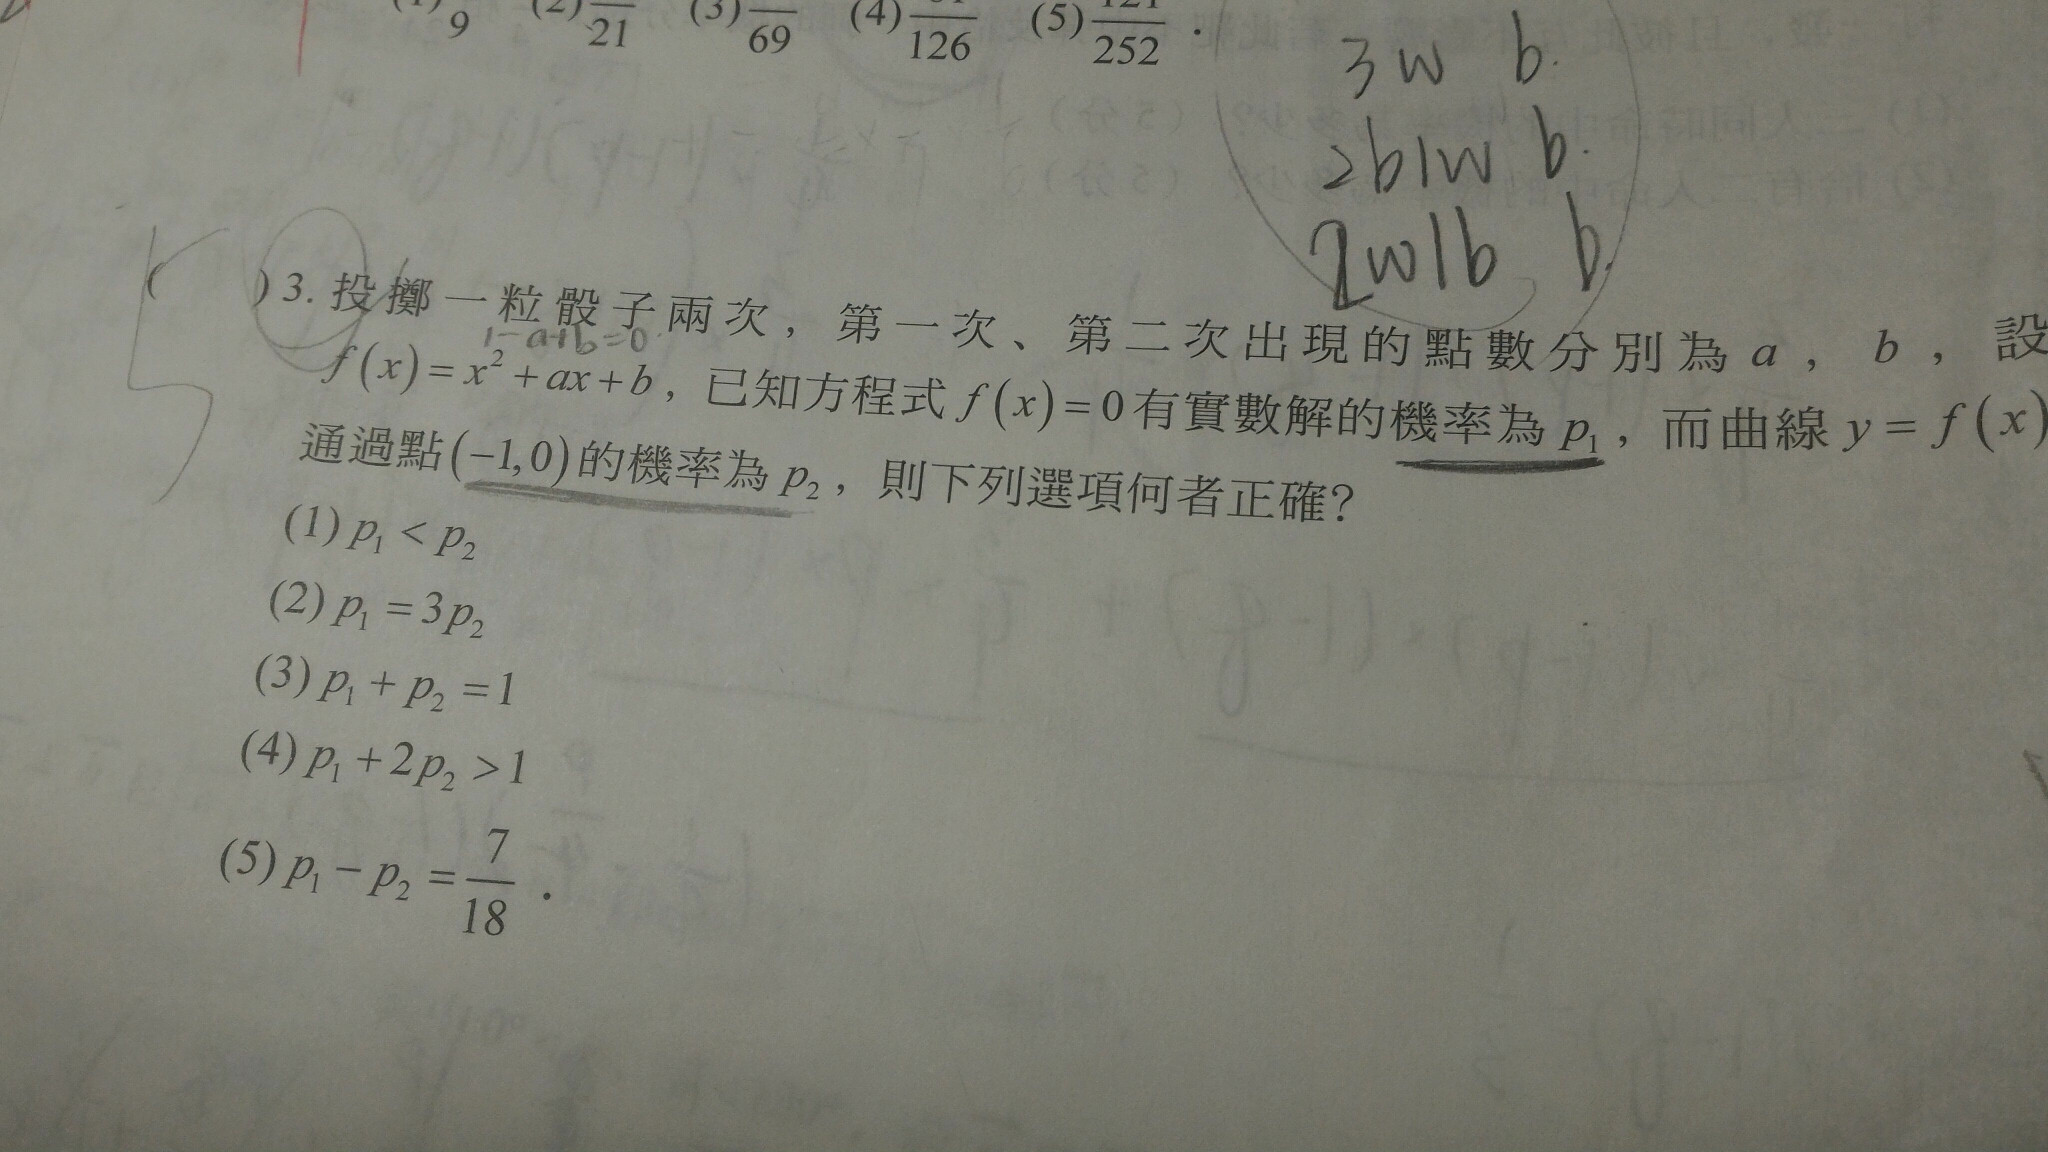 (1) 9 (2) 21 (3) 69 (4) 126 (5) 121/252 .
3w b.
2b1w b.
2w1b b.
( )3. 投擲一粒骰子兩次，第一次、第二次出現的點數分別為 a ， b ，設
1-a+b=0
f(x)=x²+ax+b，已知方程式 f(x)=0 有實數解的機率為 p₁，而曲線 y=f(x)
通過點(−1,0)的機率為 p₂，則下列選項何者正確?
(1) p₁ < p₂
(2) p₁ = 3p₂
(3) p₁ + p₂ = 1
(4) p₁ + 2p₂ > 1
(5) p₁ − p₂ = 7/18 .